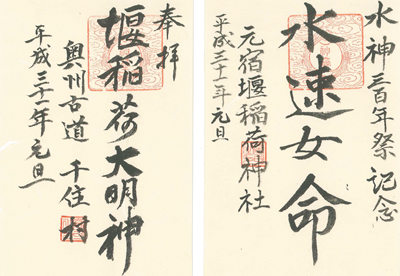 奉拝
堰稲荷大明神
奥州古道 千住村
平成三十一年元旦
水神三百年祭記念
水速女命
元宿堰稲荷神社
平成三十一年元旦